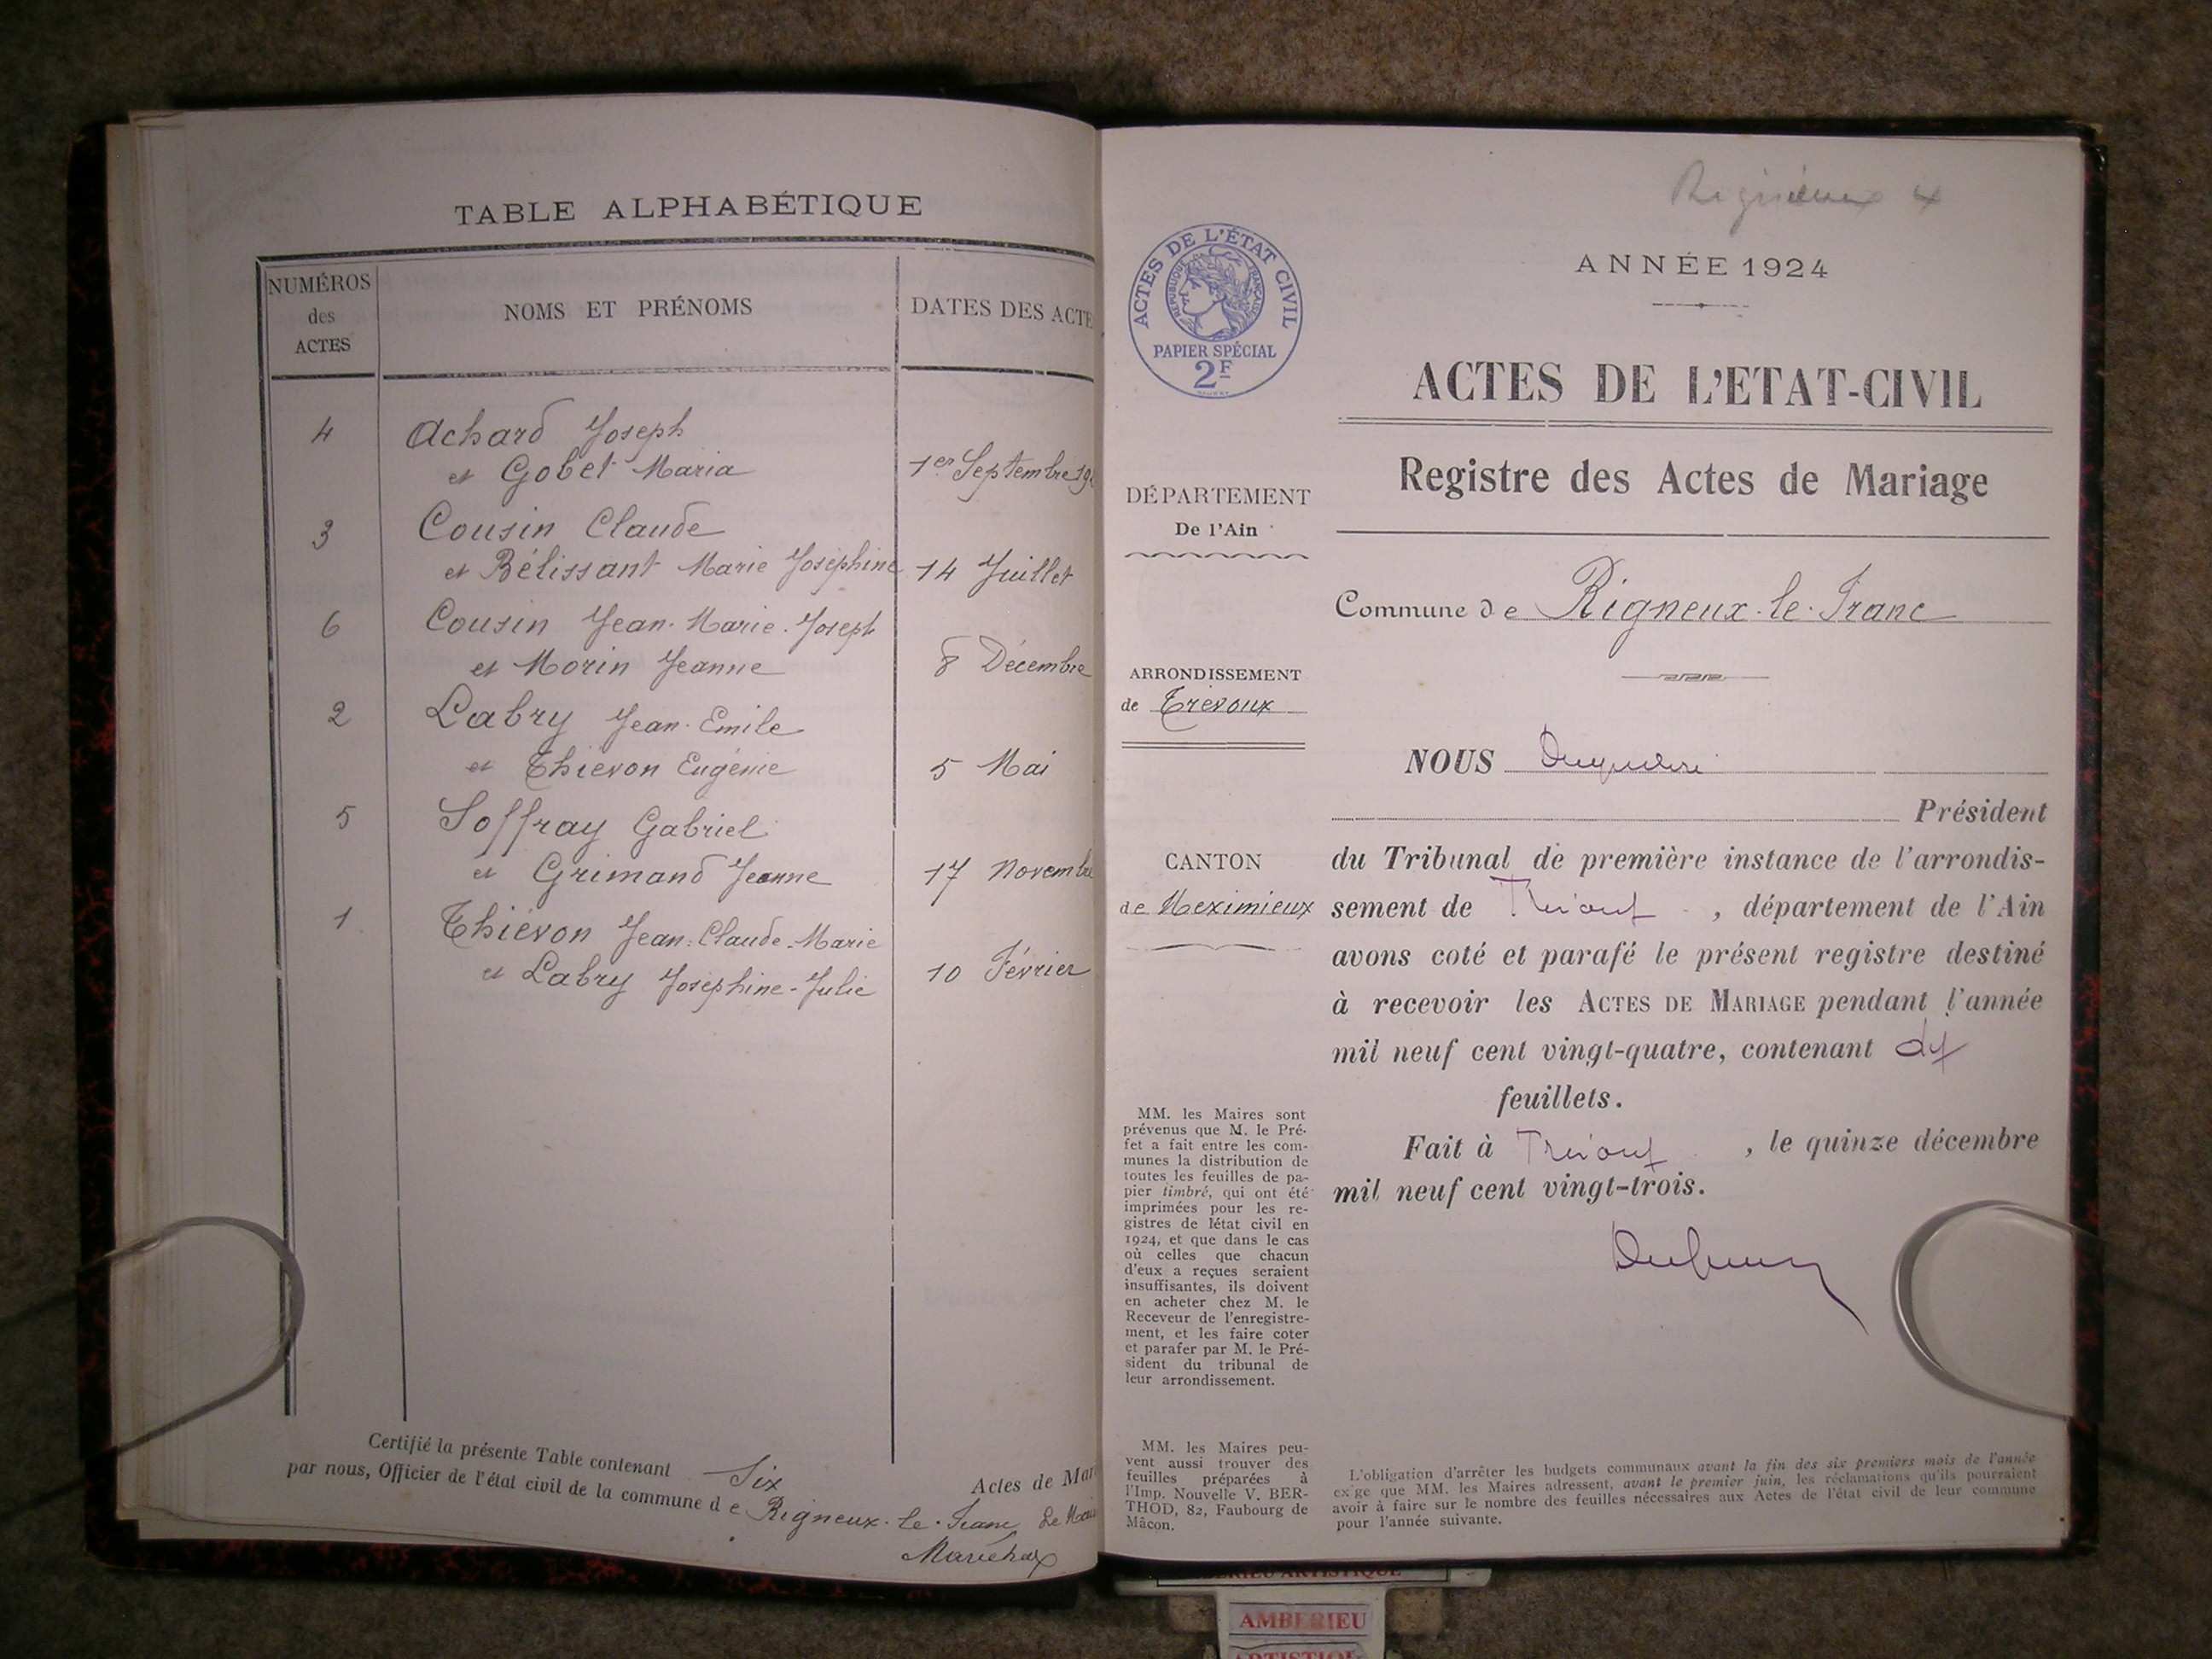 TABLE ALPHABÉTIQUE
NUMÉROS
des
ACTES
NOMS ET PRÉNOMS
DATES DES ACTE
4 Achard Joseph
et Gobet Maria 1er Septembre 19
3 Cousin Claude
et Bélissant Marie Joséphine 14 Juillet
6 Cousin Jean-Marie-Joseph
et Morin Jeanne 8 Décembre
2 Labry Jean-Emile
et Thiévon Eugénie 5 Mai
5 Soffray Gabriel
et Grimand Jeanne 17 Novembre
1 Thiévon Jean-Claude-Marie
et Labry Joséphine-Julie 10 Février
Certifié la présente Table contenant Six Actes de Mar
par nous, Officier de l'état civil de la commune de Rigneux-le-Franc Le Maire
Maréchal
Rignieux
ACTES DE L'ÉTAT CIVIL
RÉPUBLIQUE FRANÇAISE
PAPIER SPÉCIAL
2F
DÉPARTEMENT
De l'Ain
ARRONDISSEMENT
de Trévoux
CANTON
de Meximieux
MM. les Maires sont
prévenus que M. le Pré-
fet a fait entre les com-
munes la distribution de
toutes les feuilles de pa-
pier timbré, qui ont été
imprimées pour les re-
gistres de létat civil en
1924, et que dans le cas
où celles que chacun
d'eux a reçues seraient
insuffisantes, ils doivent
en acheter chez M. le
Receveur de l'enregistre-
ment, et les faire coter
et parafer par M. le Pré-
sident du tribunal de
leur arrondissement.
MM. les Maires peu-
vent aussi trouver des
feuilles préparées à
l'Imp. Nouvelle V. BER-
THOD, 82, Faubourg de
Mâcon.
ANNÉE 1924
ACTES DE L'ETAT-CIVIL
Registre des Actes de Mariage
Commune de Rigneux-le-Franc
NOUS
Président
du Tribunal de première instance de l'arrondis-
sement de Trévoux, département de l'Ain
avons coté et parafé le présent registre destiné
à recevoir les ACTES DE MARIAGE pendant l'année
mil neuf cent vingt-quatre, contenant dix
feuillets.
Fait à Trévoux, le quinze décembre
mil neuf cent vingt-trois.
L'obligation d'arrêter les budgets communaux avant la fin des six premiers mois de l'année
exige que MM. les Maires adressent, avant le premier juin, les réclamations qu'ils pourraient
avoir à faire sur le nombre des feuilles nécessaires aux Actes de l'état civil de leur commune
pour l'année suivante.
AMBERIEU